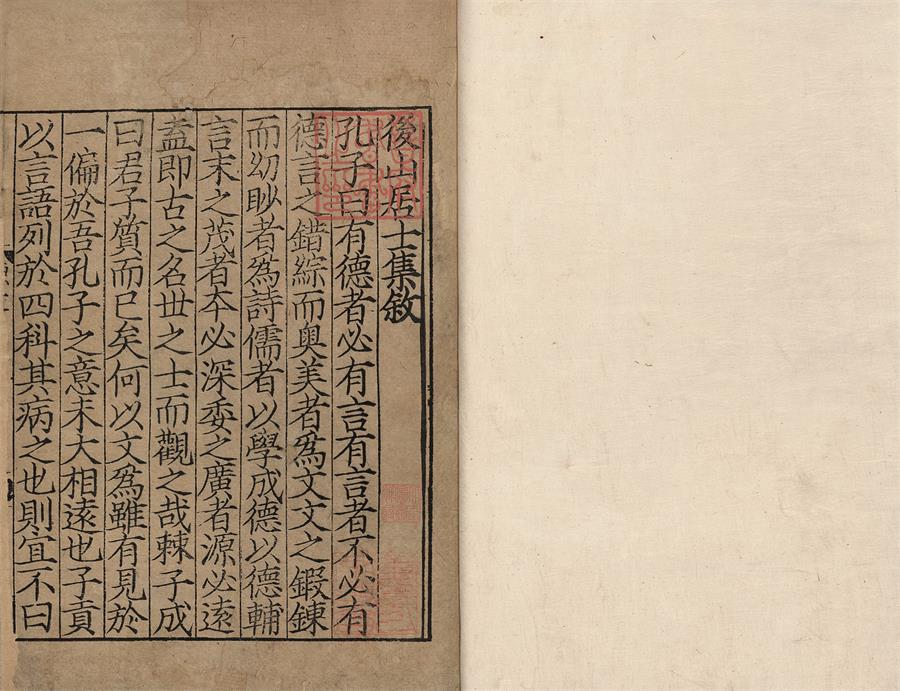 後山居士集敘
孔子曰有德者必有言有言者不必有
德言之錯綜而奧美者爲文文之鍛鍊
而幼眇者爲詩儒者以學成德以德輔
言末之茂者夲必深委之廣者源必逺
蓋即古之名世之士而觀之哉棘子成
曰君子質而已矣何以文爲雖有見於
一偏於吾孔子之意未大相逺也子貢
以言語列於四科其病之也則宜不曰